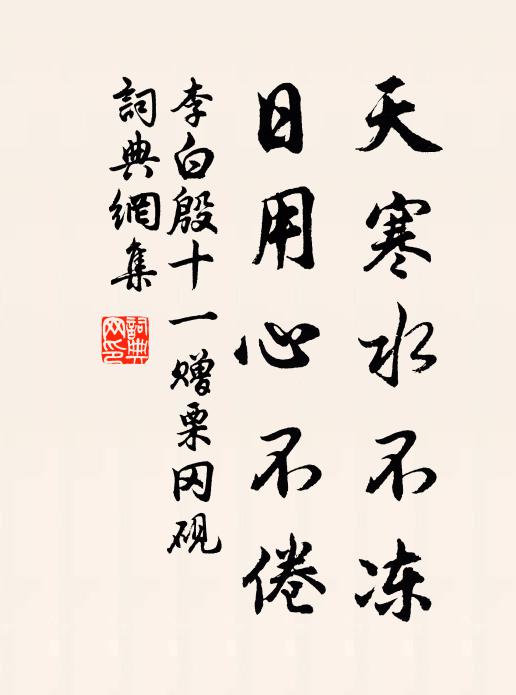 天寒水不冻
日用心不倦
李白殷十一赠栗冈砚
詞典網集
詞典网印